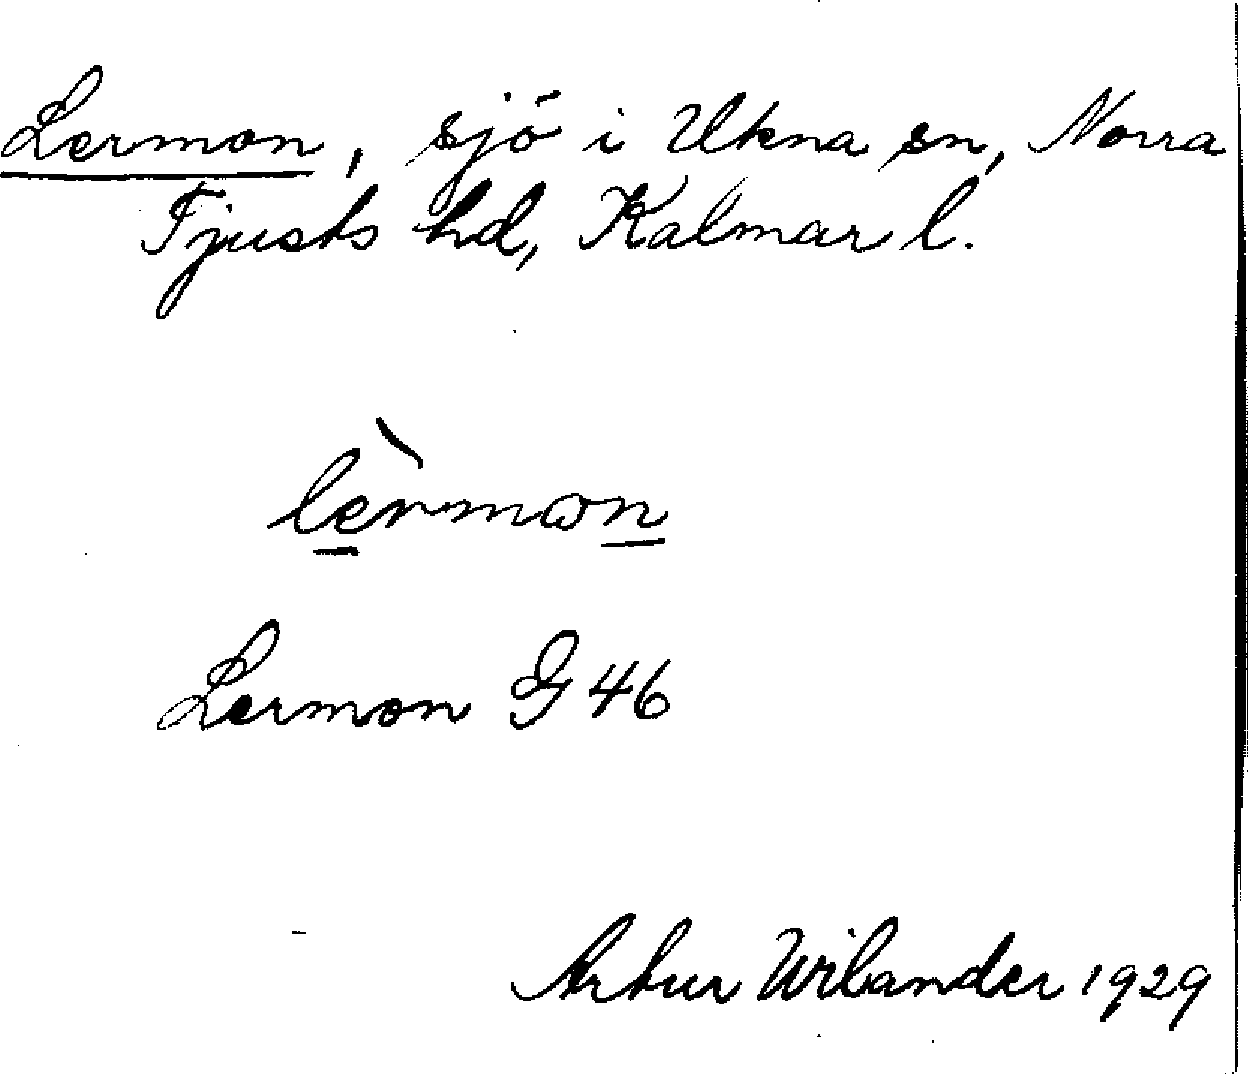 Lermon, sjö i Ukna sn, Norra
Tjusts hd, Kalmar l.
lèrmωn
Lermon G 46
Artur Wilander 1929